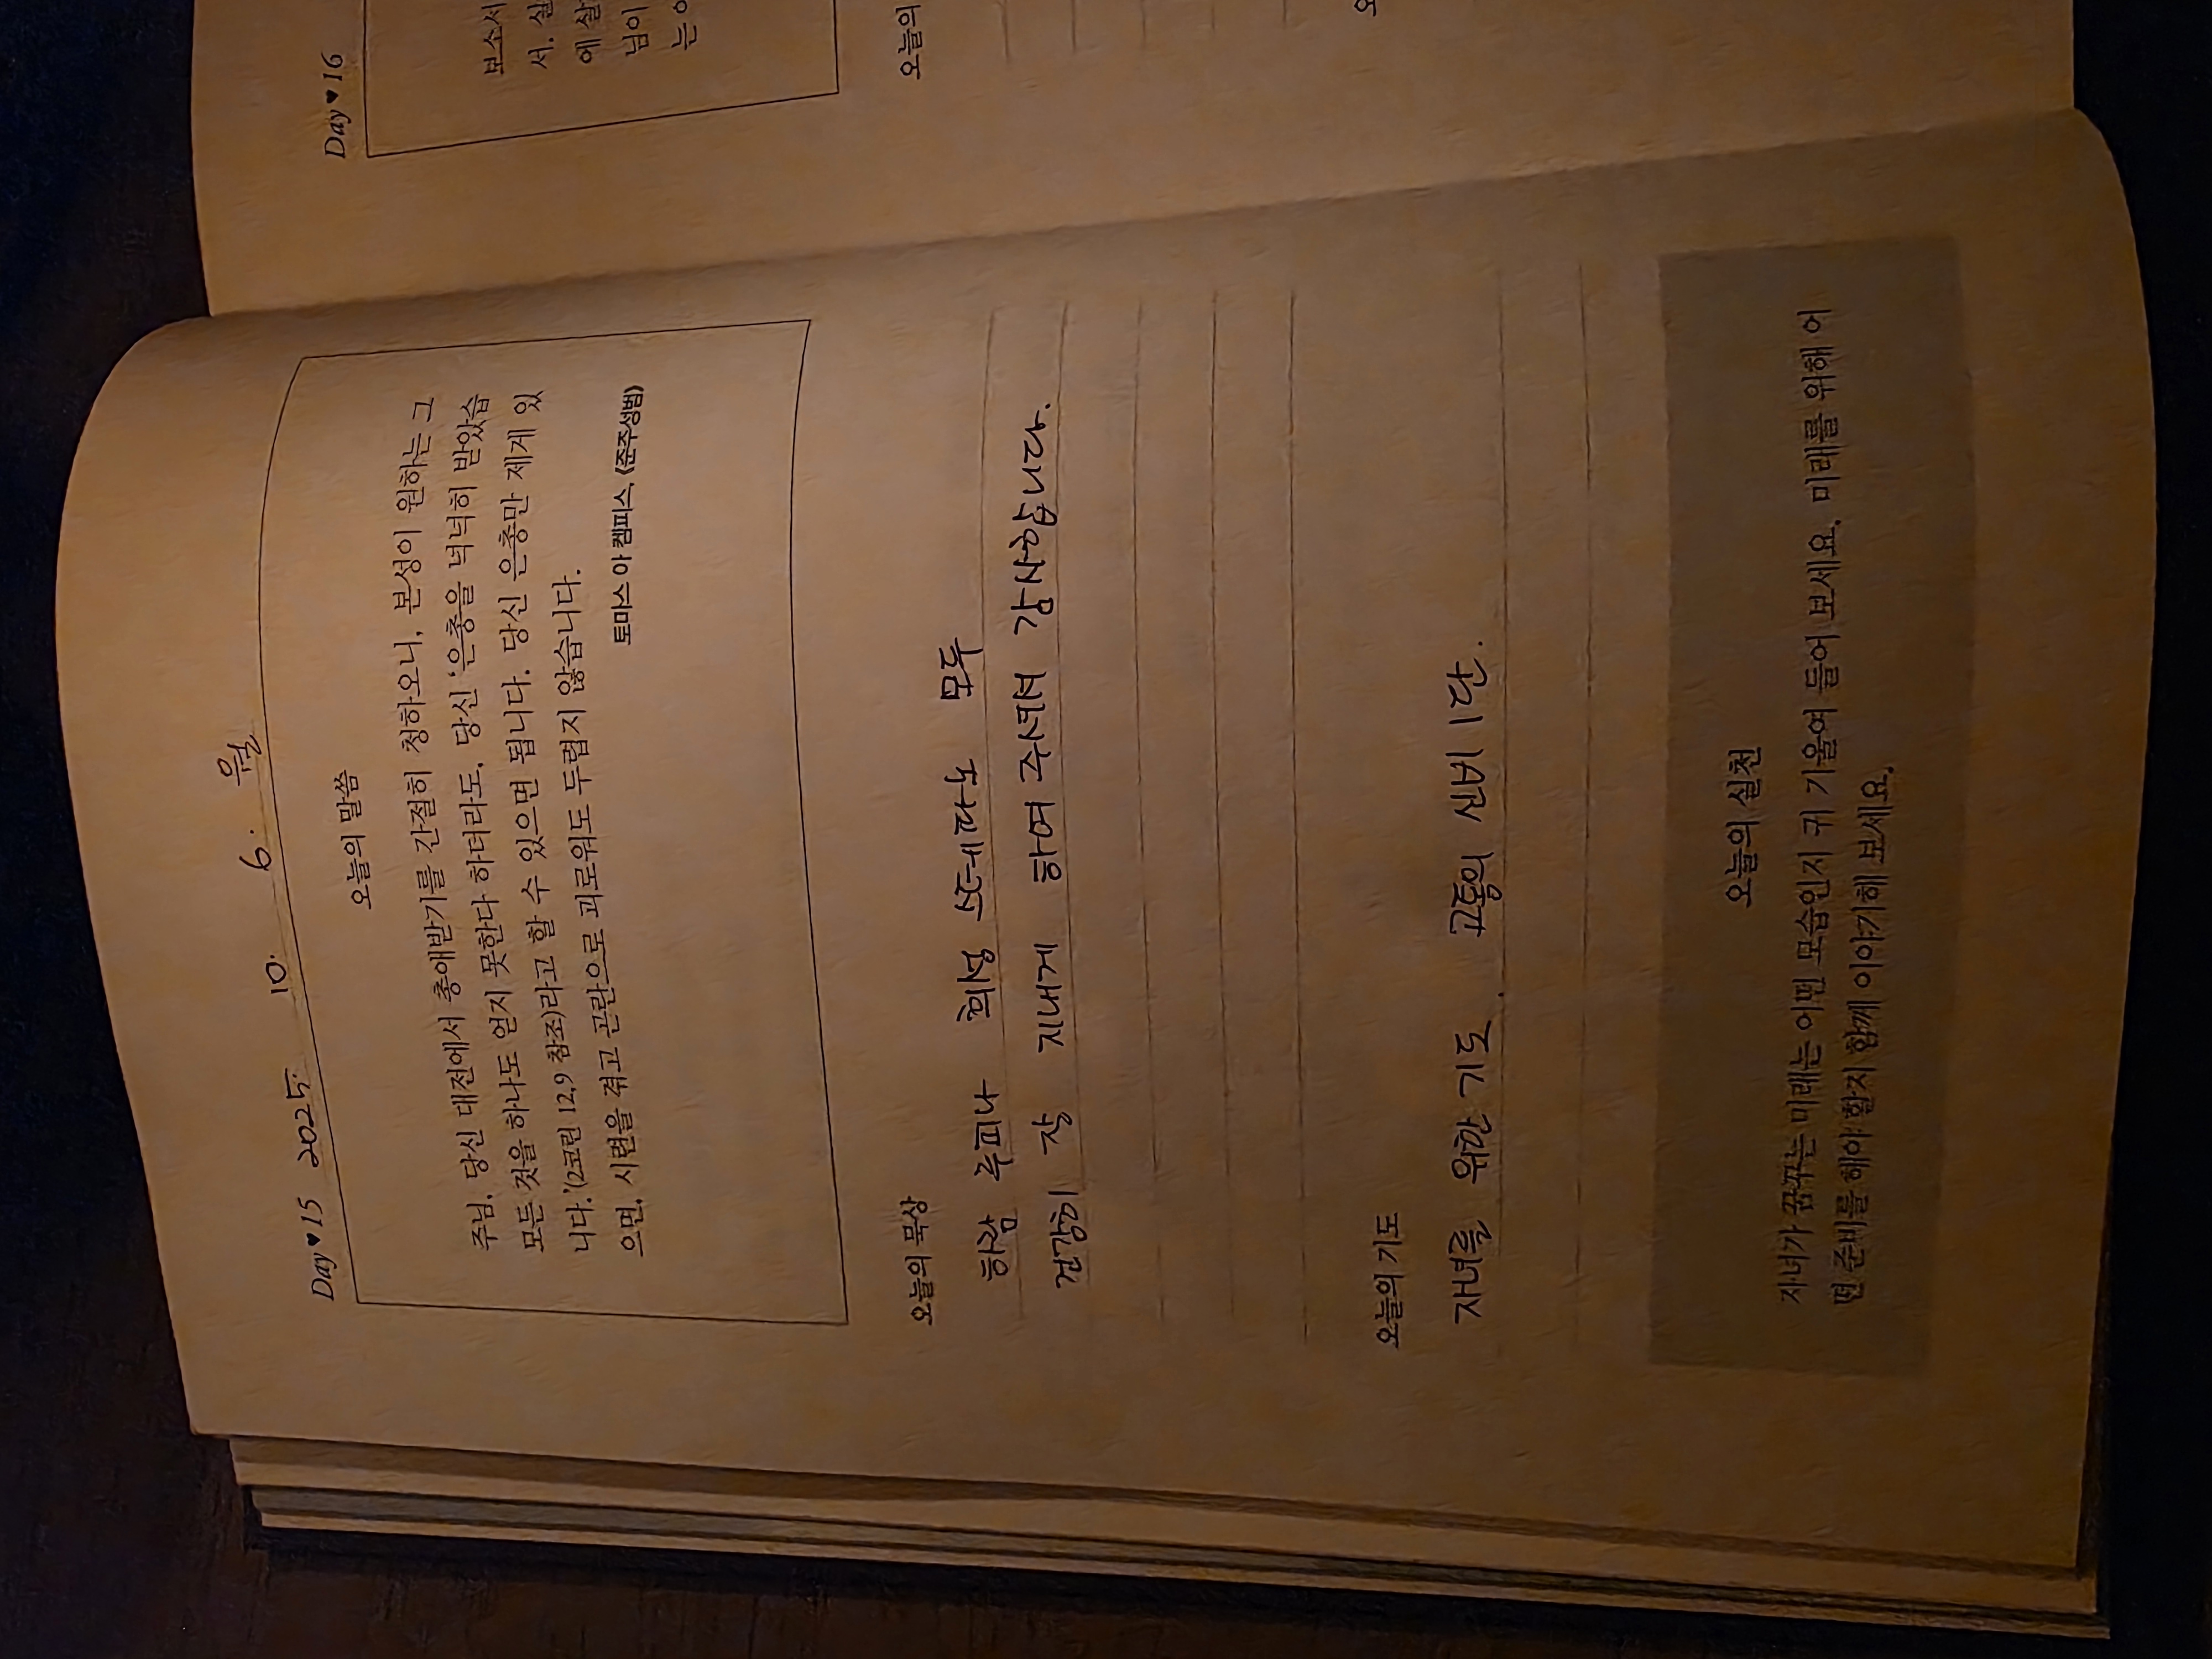 Day♥15 2025. 10. 6. 월
오늘의 말씀
주님, 당신 대전에서 총애받기를 간절히 청하오니, 본성이 원하는 그
모든 것을 하나도 얻지 못한다 하더라도, 당신 ‘은총을 넉넉히 받았습
니다.’(2코린 12,9 참조)라고 할 수 있으면 됩니다. 당신 은총만 제게 있
으면, 시련을 겪고 곤란으로 괴로워도 두렵지 않습니다.
토마스 아 켐피스, 《준주성범》
오늘의 묵상
하람 루피나 희성 스테파노 모두
건강히 잘 지내게 하여 주셔서 감사합니다.
오늘의 기도
자녀를 위한 기도. 고통의 신비 1단.
오늘의 실천
자녀가 꿈꾸는 미래는 어떤 모습인지 귀 기울여 들어 보세요. 미래를 위해 어
떤 준비를 해야 할지 함께 이야기해 보세요.
Day♥16
보소서
서, 실
에 살
님이
는 이
오늘의
오